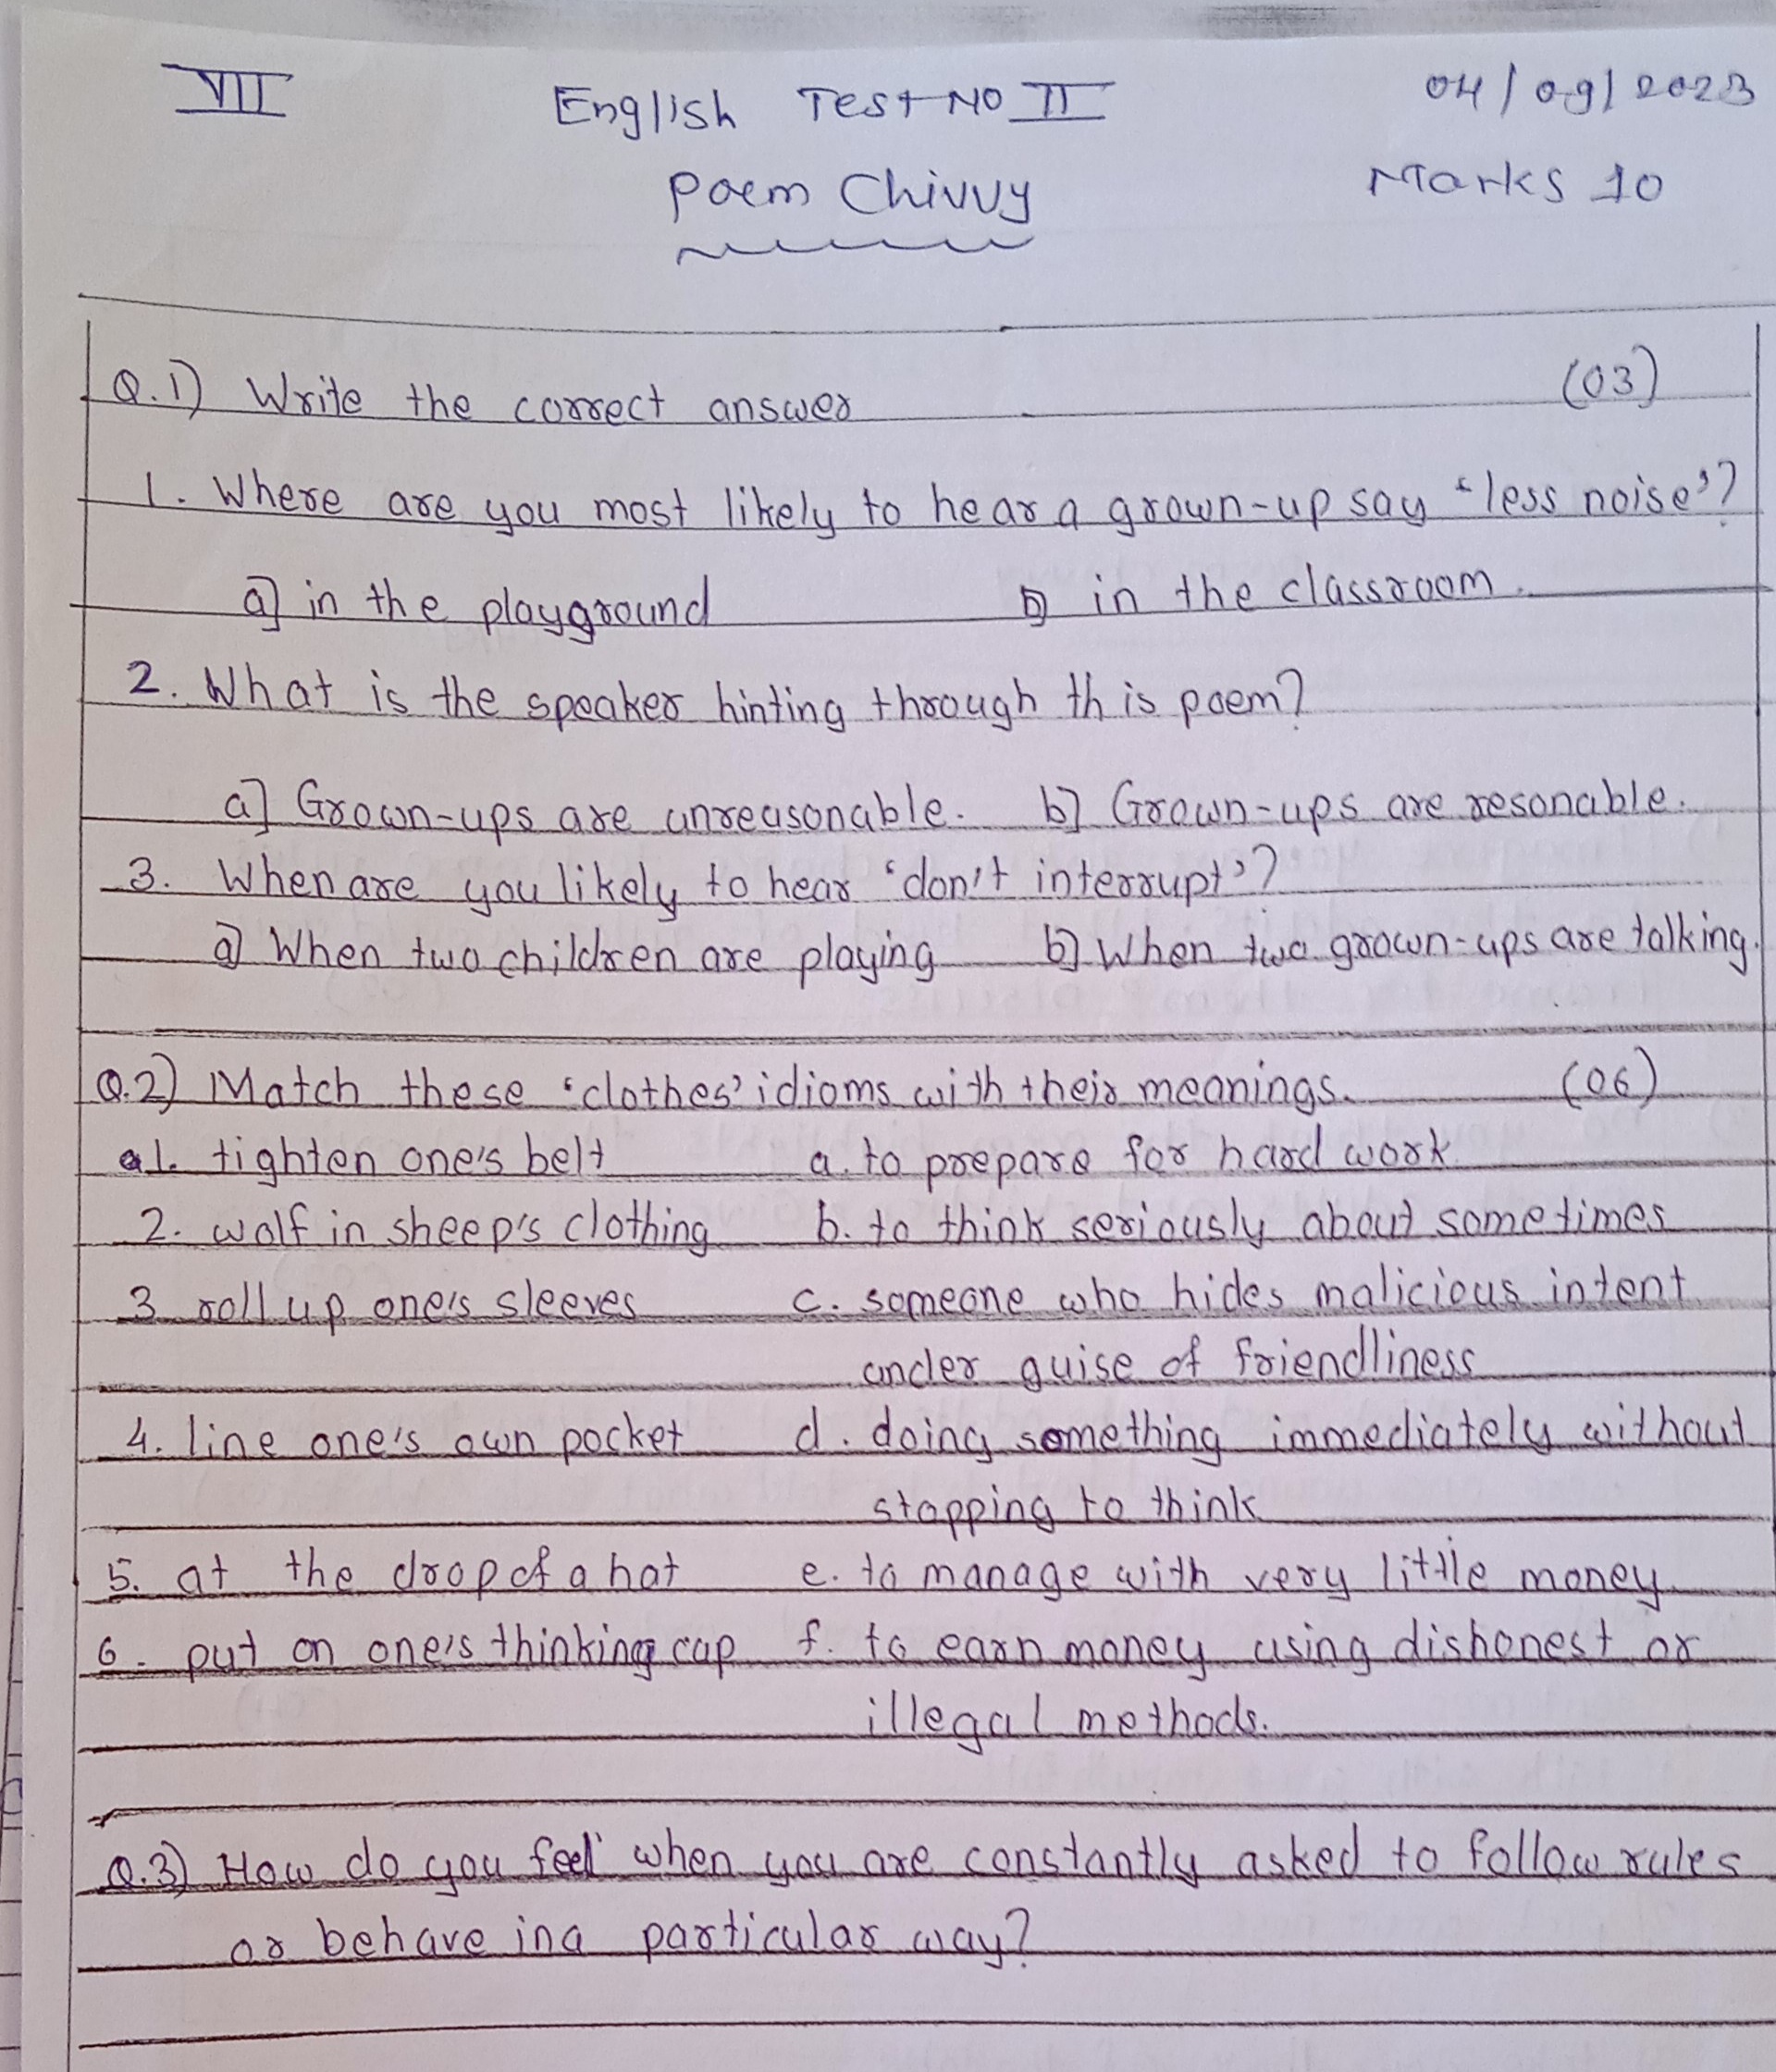 VII English Test No II 04/09/2023
Poem Chivvy Marks 10
Q.1) Write the correct answer (03)
1. Where are you most likely to hear a grown-up say 'less noise'?
a] in the playground b] in the classroom.
2. What is the speaker hinting through this poem?
a] Grown-ups are unreasonable. b] Grown-ups are resonable.
3. When are you likely to hear 'don't interrupt'?
a] When two children are playing b] When two grown-ups are talking.
Q.2) Match these 'clothes' idioms with their meanings. (06)
1. tighten one's belt a. to prepare for hard work
2. wolf in sheep's clothing b. to think seriously about sometimes
3 roll up one's sleeves c. someone who hides malicious intent
under guise of friendliness
4. line one's own pocket d. doing something immediately without
stopping to think
5. at the drop of a hat e. to manage with very little money
6. put on one's thinking cap f. to earn money using dishonest or
illegal methods.
Q.3) How do you feel when you are constantly asked to follow rules
or behave in a particular way?